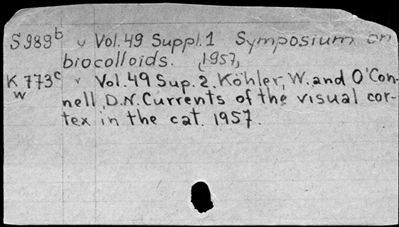 S989b v Vol.49 Suppl.1 Symposium on
biocolloids. (1957)
K773c v Vol.49 Sup.2. Köhler, W. and O'Con-
w nell, D.N. Currents of the visual cor-
tex in the cat. 1957.